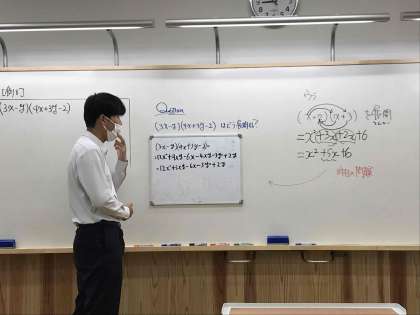 [例1]
(3x-y)(4x+3y-2)
Question
(3x-y)(4x+3y-2) はどう展開する?
(3x-y)(4x+3y-2)
=12x²+9xy-6x-4xy-3y²+2y
=12x²+5xy-6x-3y²+2y
(x+2)(x+3) を展開
=x²+3x+2x+6
=x²+5x+6